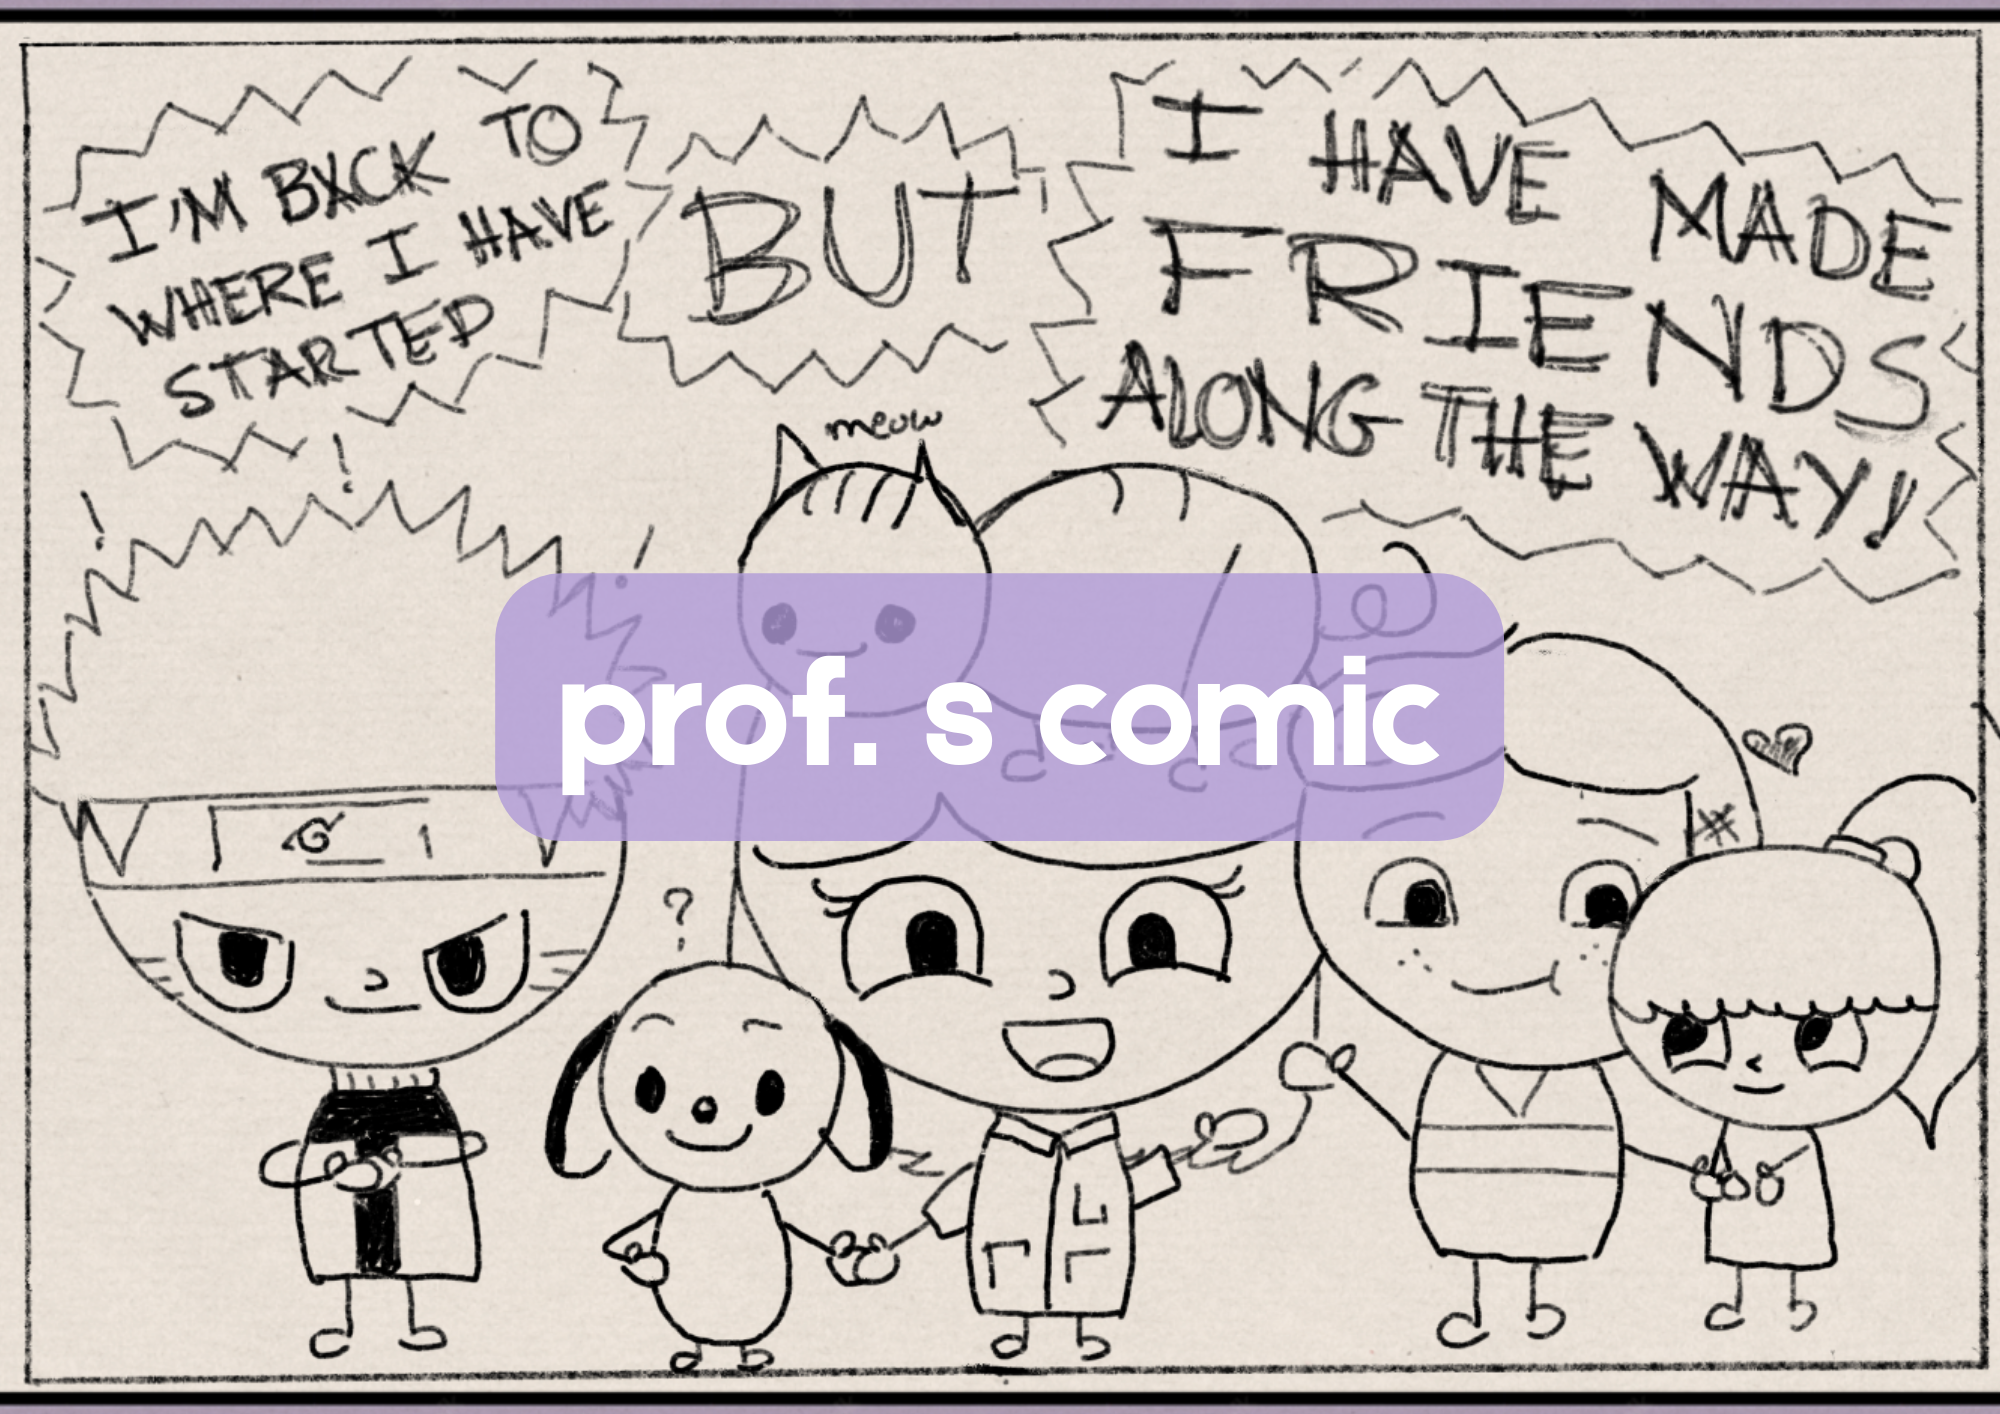 I'M BACK TO
WHERE I HAVE
STARTED
BUT
I HAVE MADE
FRIENDS
ALONG THE WAY!
meow
!
!
!
prof. s comic
?